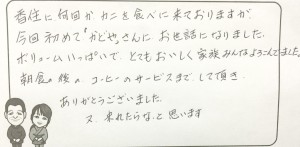 香住に何回かカニを食べに来ておりますが、
今回初めて"かどや"さんにお世話になりました。
ボリュームいっぱいで、とてもおいしく家族みんなよろこんでました。
朝食の後のコーヒーのサービスまでして頂き
ありがとうございました。
又来れたらな、と思います